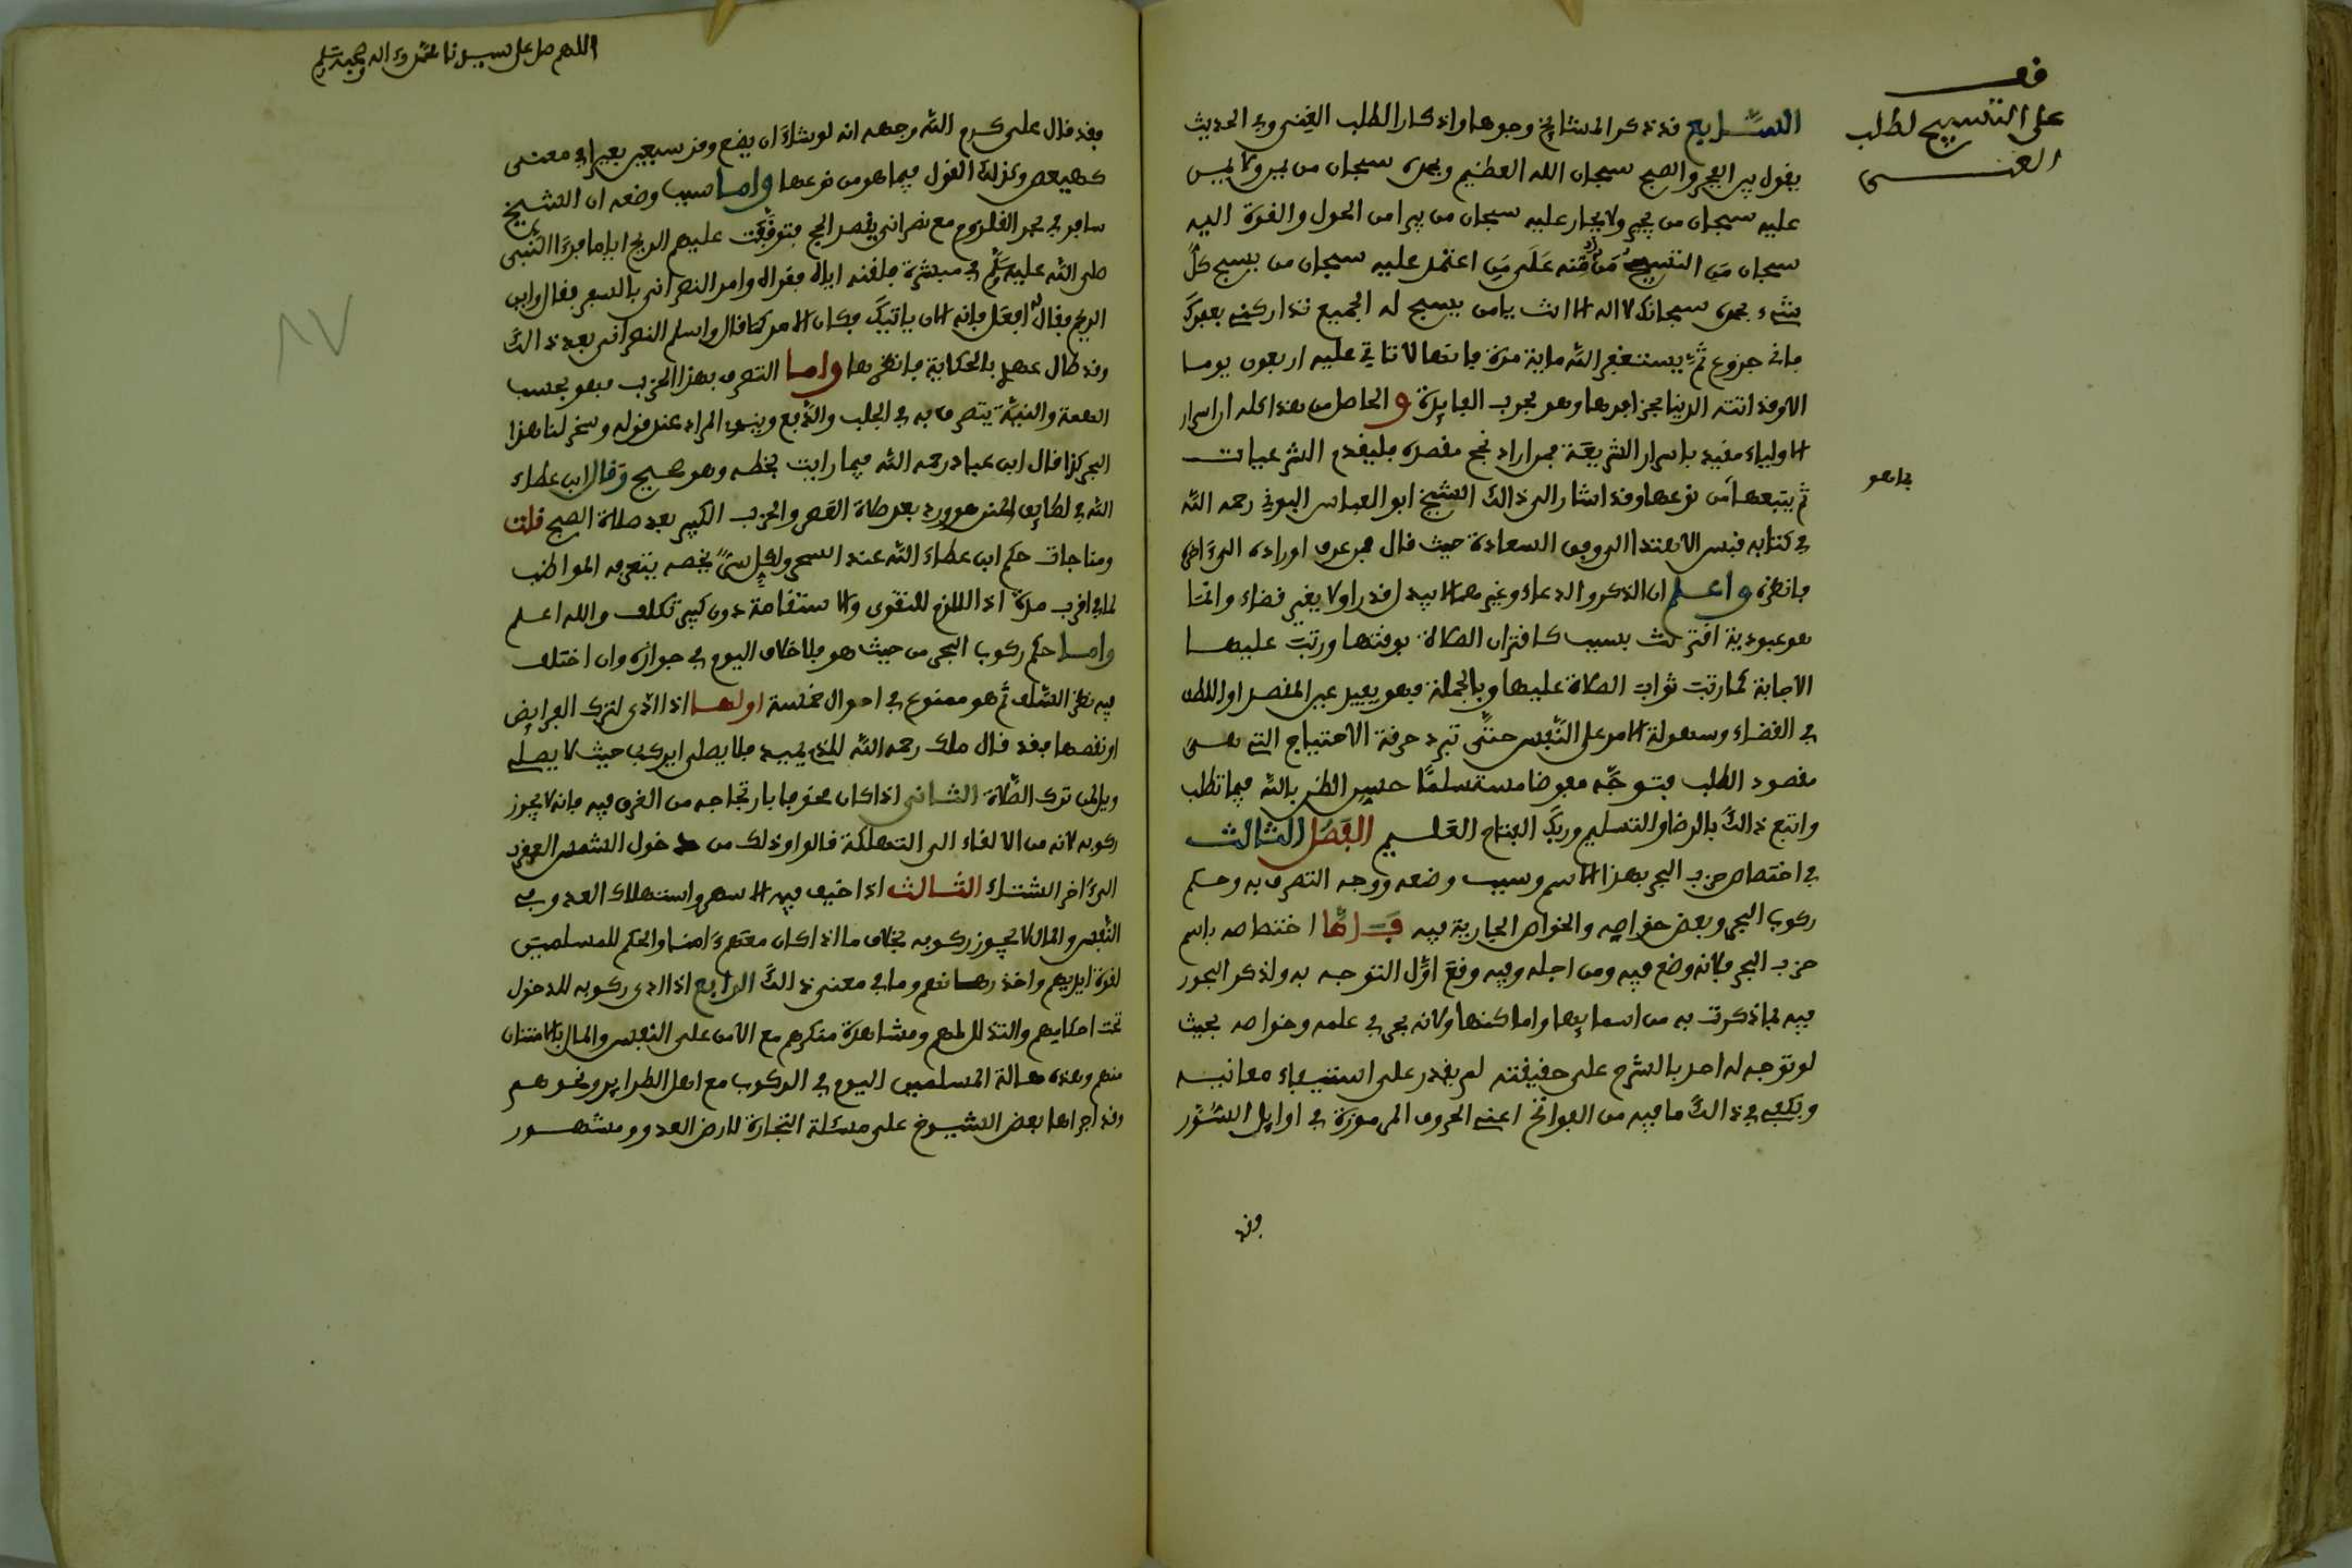 قف
على التسبيح لطلب
الغنى
السابع قد ذكر المشايخ وجوها واذكارا لطلب الغنى وفي الحديث
يقول بين الفجر والصبح سبحان الله العظيم وبحمده سبحان من يمن ولا يمن
عليه سبحان من يجير ولا يجار عليه سبحان من يبرا من الحول والقوة اليه
سبحان من التسبيح منة منه على من اعتمد عليه سبحان من يسبح كل
شيء بحمده سبحانك لا اله الا انت يا من يسبح له الجميع تداركني بعفوك
فاني جزوع ثم يستغفر الله ماية مرة فانها لا تاتي عليه اربعون يوما
الا وقد اتته الدنيا بحذافرها وهو مجرب الفايدة والحاصل من هذا كله ان اسرار
الاولياء مقيد باسرار الشريعة فمن اراد نجح مقصده فليقدم الشرعيات
ثم يتبعها من نوعها وقد اشار الى ذالك الشيخ ابو العباس البوني رحمه الله
فما هو
في كتابه قبس الاهتدا الى وفق السعادة حيث قال فمن عرف اوراده الى ءاخره
فانظره واعلم ان الذكر والدعاء وغيرهما لا يبدل قدرا ولا يغير قضاء وانما
هو عبودية اقترنت بسبب كاقتران الصلاة بوقتها ورتبت عليها
الاجابة كما رتب ثواب الصلاة عليها وبالجملة فهو يفيد عين المقصد او اللطف
في القضاء وسهولة الامر على النفس حتى تبرد حرقة الاحتياج التي هي
مقصود الطلب فتوجه مفوضا مستسلما حسن الظن بالله فيما تطلب
واتبع ذالك بالرضا والتسليم وربك الفتاح العليم الفصل الثالث
في اختصاص حزب البحر بهذا الاسم وسبب وضعه ووجه التصرف به وحكم
ركوب البحر وبعض خواصه والخواص الجارية فيه فاما اختصاصه باسم
حزب البحر فلانه وضع فيه ومن اجله وفيه وقع اول التوجه به ولذكر البحور
فيه بما ذكرت به من اسمايها واماكنها ولانه بحر في علمه وخواصه بحيث
لو توجه له احد بالشرح على حقيقته لم يقدر على استيفاء معانيه
ويكفي في ذالك ما فيه من الفواتح اعني الحروف المرموزة في اوايل السور
وقد
اللهم صل على سيدنا محمد وءاله وصحبه وسلم
٨٧
فقد قال علي كرم الله وجهه انه لو شاء ان يضع وقر سبعين بعيرا في معنى
كهيعص وكذلك القول فيما هو من نوعها واما سبب وضعه ان الشيخ
سافر في بحر القلزوم مع نصراني يقصد الحج فتوقفت عليهم الريح اياما فرءا النبي
صلى الله عليه وسلم في مبشرة فلقنه اياه فقراه وامر النصراني بالسفر فقال واين
الريح فقال له افعل فانه الان ياتيك فكان الامر كما قال واسلم النصراني بعد ذالك
وقد طال عهدي بالحكاية فانظرها واما التصرف بهذا الحزب فهو بحسب
الهمة والنية يتصرف به في الجلب والدفع وينوي المراد عند قوله وسخر لنا هذا
البحر كذا قال ابن عباد رحمه الله فيما رايت بخطه وهو صحيح وقال ابن عطاء
الله في لطايف المنن هو ورد بعد صلاة العصر والحزب الكبير بعد صلاة الصبح قلت
ومناجات حكم ابن عطاء الله عند السحر ولكل شيء يخصه ينتفع به المواظب
لما في اقرب مدة اذا لازم للتقوى والاستقامة دون كبير تكلف والله اعلم
واما حكم ركوب البحر من حيث هو فلا خلاف اليوم في جوازه وان اختلف
فيه نظر السلف ثم هو ممنوع في احوال خمسة اولها اذا ادى لترك الفرايض
او نقصها فقد قال ملك رحمه الله للذي يميد فلا يصلي ايركب حيث لا يصلي
ويل لمن ترك الصلاة الثاني اذا كان مخوفا بارتجاجه من الغرق فيه فانه لا يجوز
ركوبه لانه من الالقاء الى التهلكة قالوا وذلك من دخول الشمس العقرب
الى ءاخر الشتاء الثالث اذا خيف فيه الاسر واستهلاك العدو في
النفس والمال لا يجوز ركوبه بخلاف ما اذا كان معهم ءامنا والحكم للمسلمين
لقوة ايديهم واخذ رهانهم وما في معنى ذالك الرابع اذا ادى ركوبه للدخول
تحت احكامهم والتذلل لهم ومشاهدة منكرهم مع الامن على النفس والمال بالاستئمان
منهم وهذه حالة المسلمين اليوم في الركوب مع اهل الطرايد ونحوهم
وقد اجراها بعض الشيوخ على مسئلة التجارة لارض العدو ومشهور